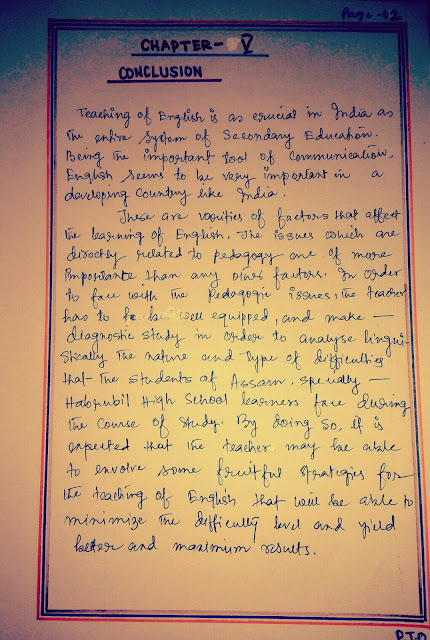 Page-42
CHAPTER- V
CONCLUSION
Teaching of English is as crucial in India as
the entire system of Secondary Education.
Being the important tool of Communication,
English seems to be very important in a
developing Country like India.
These are varities of factors that affect
the learning of English. The issues which are
directly related to pedagogy are of more
importante than any other factors. In order
to face with the Pedagogic issues, the teacher
has to be well equipped, and make —
diagnostic study in order to analyse lingui-
stically the nature and type of difficulties
that the students of Assam, specially —
Habrubil High School learners face during
the Course of Study. By doing So, it is
expected that the teacher may be able
to envolve some fruitful strategies for
the teaching of English that will be able to
minimize the difficulty level and yield
better and maximum results.
P.T.O